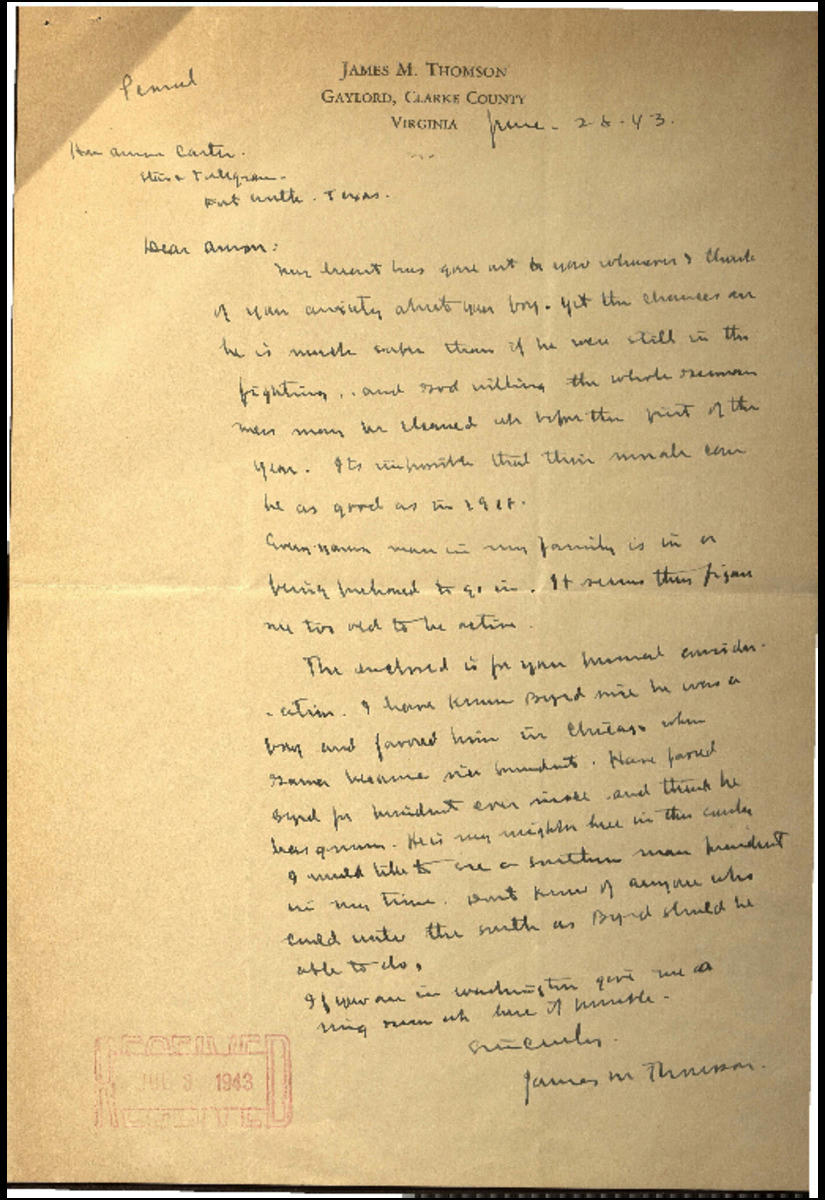 Personal
JAMES M. THOMSON
GAYLORD, CLARKE COUNTY
VIRGINIA
June - 28-43.
Hon Amon Carter.
Star & Telegram.
Fort Worth. Texas.
Dear Amon:
My heart has gone out to you whenever I think
of your anxiety about your boy. Yet the chances are
he is much safer than if he were still in the
fighting.. and God willing the whole German
mess may be cleaned up before the first of the
year. Its impossible that their morale can
be as good as in 1918.
Every young man in my family is in or
being prepared to go in. It seems they figure
me too old to be active.
The enclosed is for your personal consider-
-ation. I have known Byrd since he was a
boy and favored him in Chicago when
Garner became vice president. Have favored
Byrd for president ever since and think he
has grown. He is my neighbor here in this county
I would like to see a southern man president
in my time. Dont know of anyone who
could unite the south as Byrd should be
able to do.
If you are in Washington give me a
ring up here if possible.
Sincerely.
James M Thomson.
RECEIVED
JUL 3 1943
RECEIVED